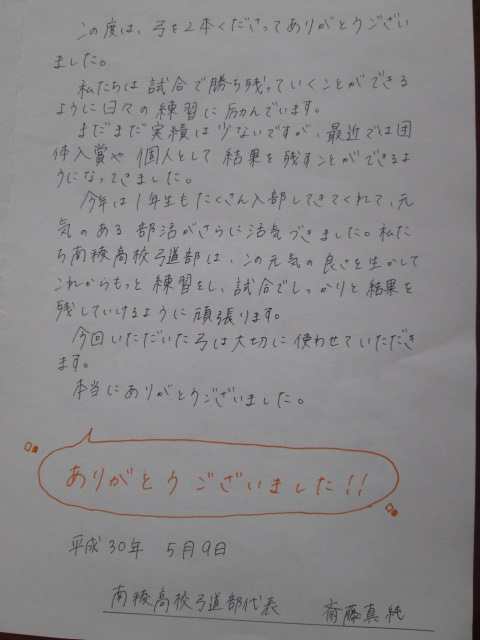 この度は、弓を2本くださってありがとうござい
ました。
私たちは試合で勝ち残っていくことができる
ように日々の練習に励んでいます。
まだまだ実績は少ないですが、最近では団
体入賞や個人として結果を残すことができるよ
うになってきました。
今年は1年生もたくさん入部してきてくれて、元
気のある部活がさらに活気づきました。私た
ち南稜高校弓道部は、この元気の良さを生かして
これからもっと練習をし、試合でしっかりと結果を
残していけるように頑張ります。
今回いただいた弓は大切に使わせていただき
ます。
本当にありがとうございました。
ありがとうございました!!
平成30年 5月9日
南稜高校弓道部代表 斎藤真純